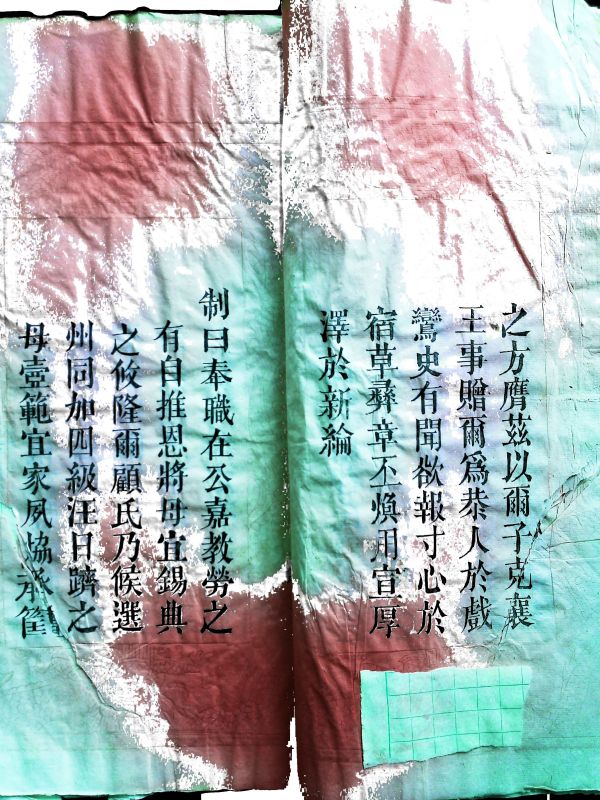 之方膺茲以爾子克襄
王事贈爾為恭人於戲
鸞史有聞欲報寸心於
宿草彝章丕煥用宣厚
澤於新綸
制曰奉職在公嘉教勞之
有自推恩將母宜錫典
之攸隆爾顧氏乃候選
州同加四級汪日躋之
母壼範宜家夙協承筐